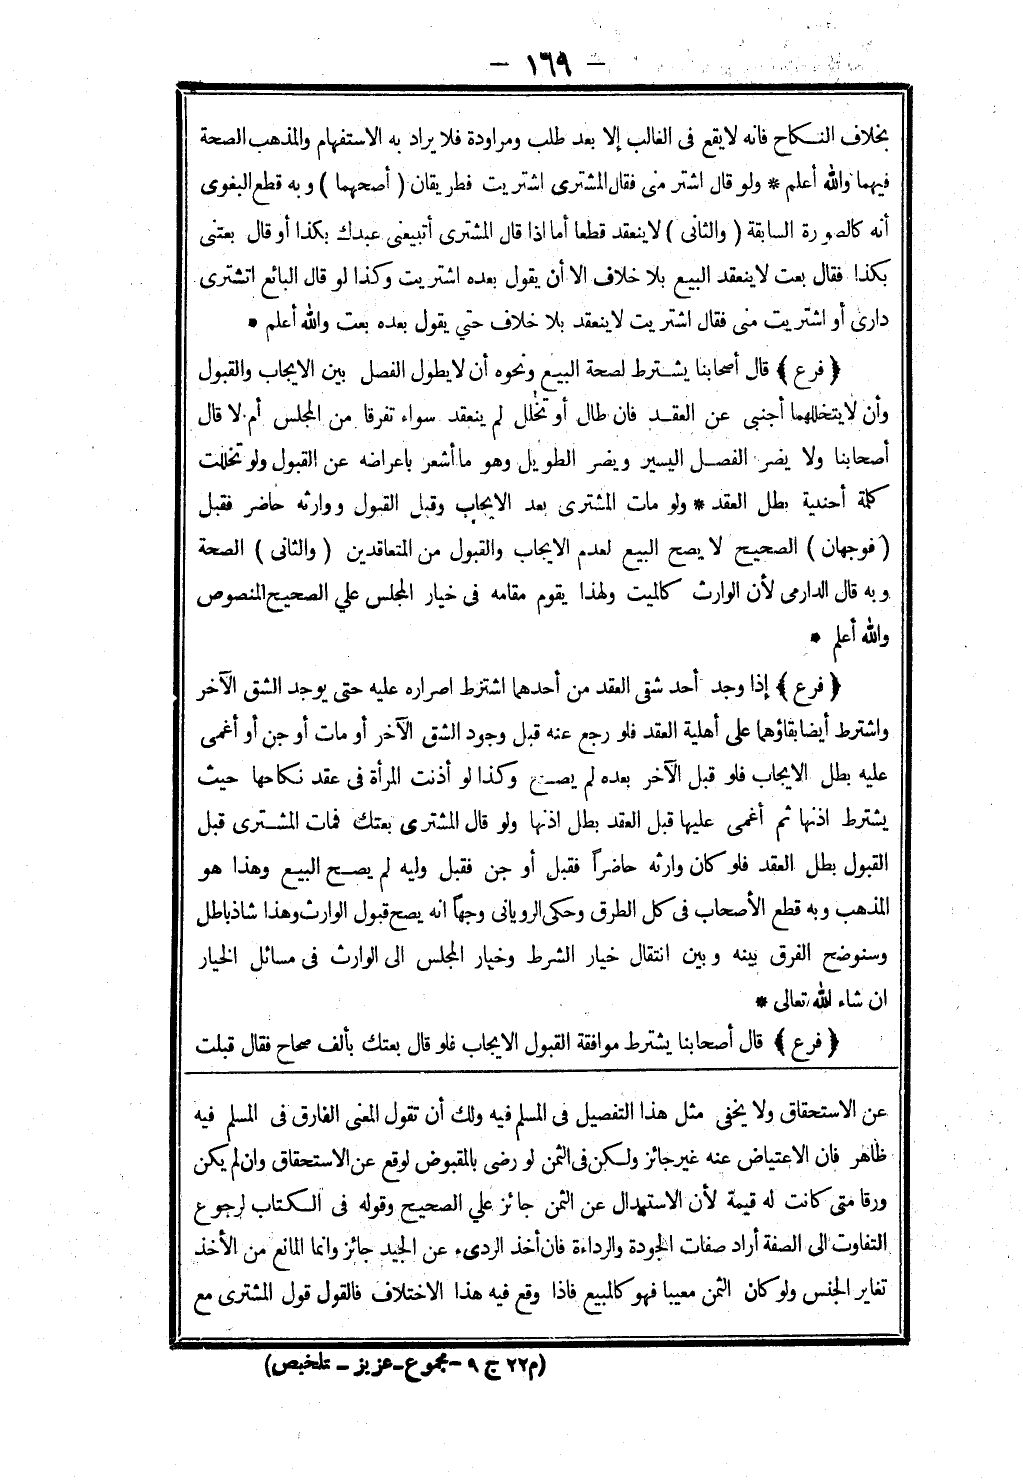 — ١٦٩ —
بخلاف النكاح فانه لايقع فى الغالب إلا بعد طلب ومراودة فلا يراد به الاستفهام والمذهب الصحة
فيهما والله أعلم * ولو قال اشتر منى فقال المشترى اشتريت فطريقان ( أصحهما ) وبه قطع البغوى
أنه كالصورة السابقة ( والثانى ) لاينعقد قطعا أما اذا قال المشترى أتبيعنى عبدك بكذا أو قال بعتنى
بكذا فقال بعت لاينعقد البيع بلا خلاف الا أن يقول بعده اشتريت وكذا لو قال البائع اتشترى
دارى أو اشتريت منى فقال اشتريت لاينعقد بلا خلاف حتي يقول بعده بعت والله أعلم *
﴿ فرع ﴾ قال أصحابنا يشترط لصحة البيع ونحوه أن لايطول الفصل بين الايجاب والقبول
وأن لايتخللهما أجنبى عن العقد فان طال أو تخلل لم ينعقد سواء تفرقا من المجلس أم لا قال
أصحابنا ولا يضر الفصل اليسير ويضر الطويل وهو ما أشعر باعراضه عن القبول ولو تخللت
كلمة أجنبية بطل العقد * ولو مات المشترى بعد الايجاب وقبل القبول ووارثه حاضر فقبل
( فوجهان ) الصحيح لا يصح البيع لعدم الايجاب والقبول من المتعاقدين ( والثانى ) الصحة
وبه قال الدارمى لأن الوارث كالميت ولهذا يقوم مقامه فى خيار المجلس علي الصحيح المنصوص
والله أعلم *
﴿ فرع ﴾ إذا وجد أحد شقى العقد من أحدهما اشترط اصراره عليه حتى يوجد الشق الآخر
واشترط أيضا بقاؤهما على أهلية العقد فلو رجع عنه قبل وجود الشق الآخر أو مات أو جن أو أغمى
عليه بطل الايجاب فلو قبل الآخر بعده لم يصح وكذا لو أذنت المرأة فى عقد نكاحها حيث
يشترط اذنها ثم أغمى عليها قبل العقد بطل اذنها ولو قال المشترى بعتك فمات المشترى قبل
القبول بطل العقد فلو كان وارثه حاضراً فقبل أو جن فقبل وليه لم يصح البيع وهذا هو
المذهب وبه قطع الأصحاب فى كل الطرق وحكى الرويانى وجهاً انه يصح قبول الوارث وهذا شاذ باطل
وسنوضح الفرق بينه وبين انتقال خيار الشرط وخيار المجلس الى الوارث فى مسائل الخيار
ان شاء الله تعالى *
﴿ فرع ﴾ قال أصحابنا يشترط موافقة القبول الايجاب فلو قال بعتك بألف صحاح فقال قبلت
عن الاستحقاق ولا يخفى مثل هذا التفصيل فى المسلم فيه ولك أن تقول المعنى الفارق فى المسلم فيه
ظاهر فان الاعتياض عنه غير جائز ولكن فى الثمن لو رضى بالمقبوض لوقع عن الاستحقاق وان لم يكن
ورقا متى كانت له قيمة لأن الاستبدال عن الثمن جائز علي الصحيح وقوله فى الكتاب لرجوع
التفاوت الى الصفة أراد صفات الجودة والرداءة فان أخذ الردىء عن الجيد جائز وانما المانع من الأخذ
تغاير الجنس ولو كان الثمن معيبا فهو كالمبيع فاذا وقع فيه هذا الاختلاف فالقول قول المشترى مع
(م ٢٢ ج ٩ - مجموع - عزيز - تلخيص)